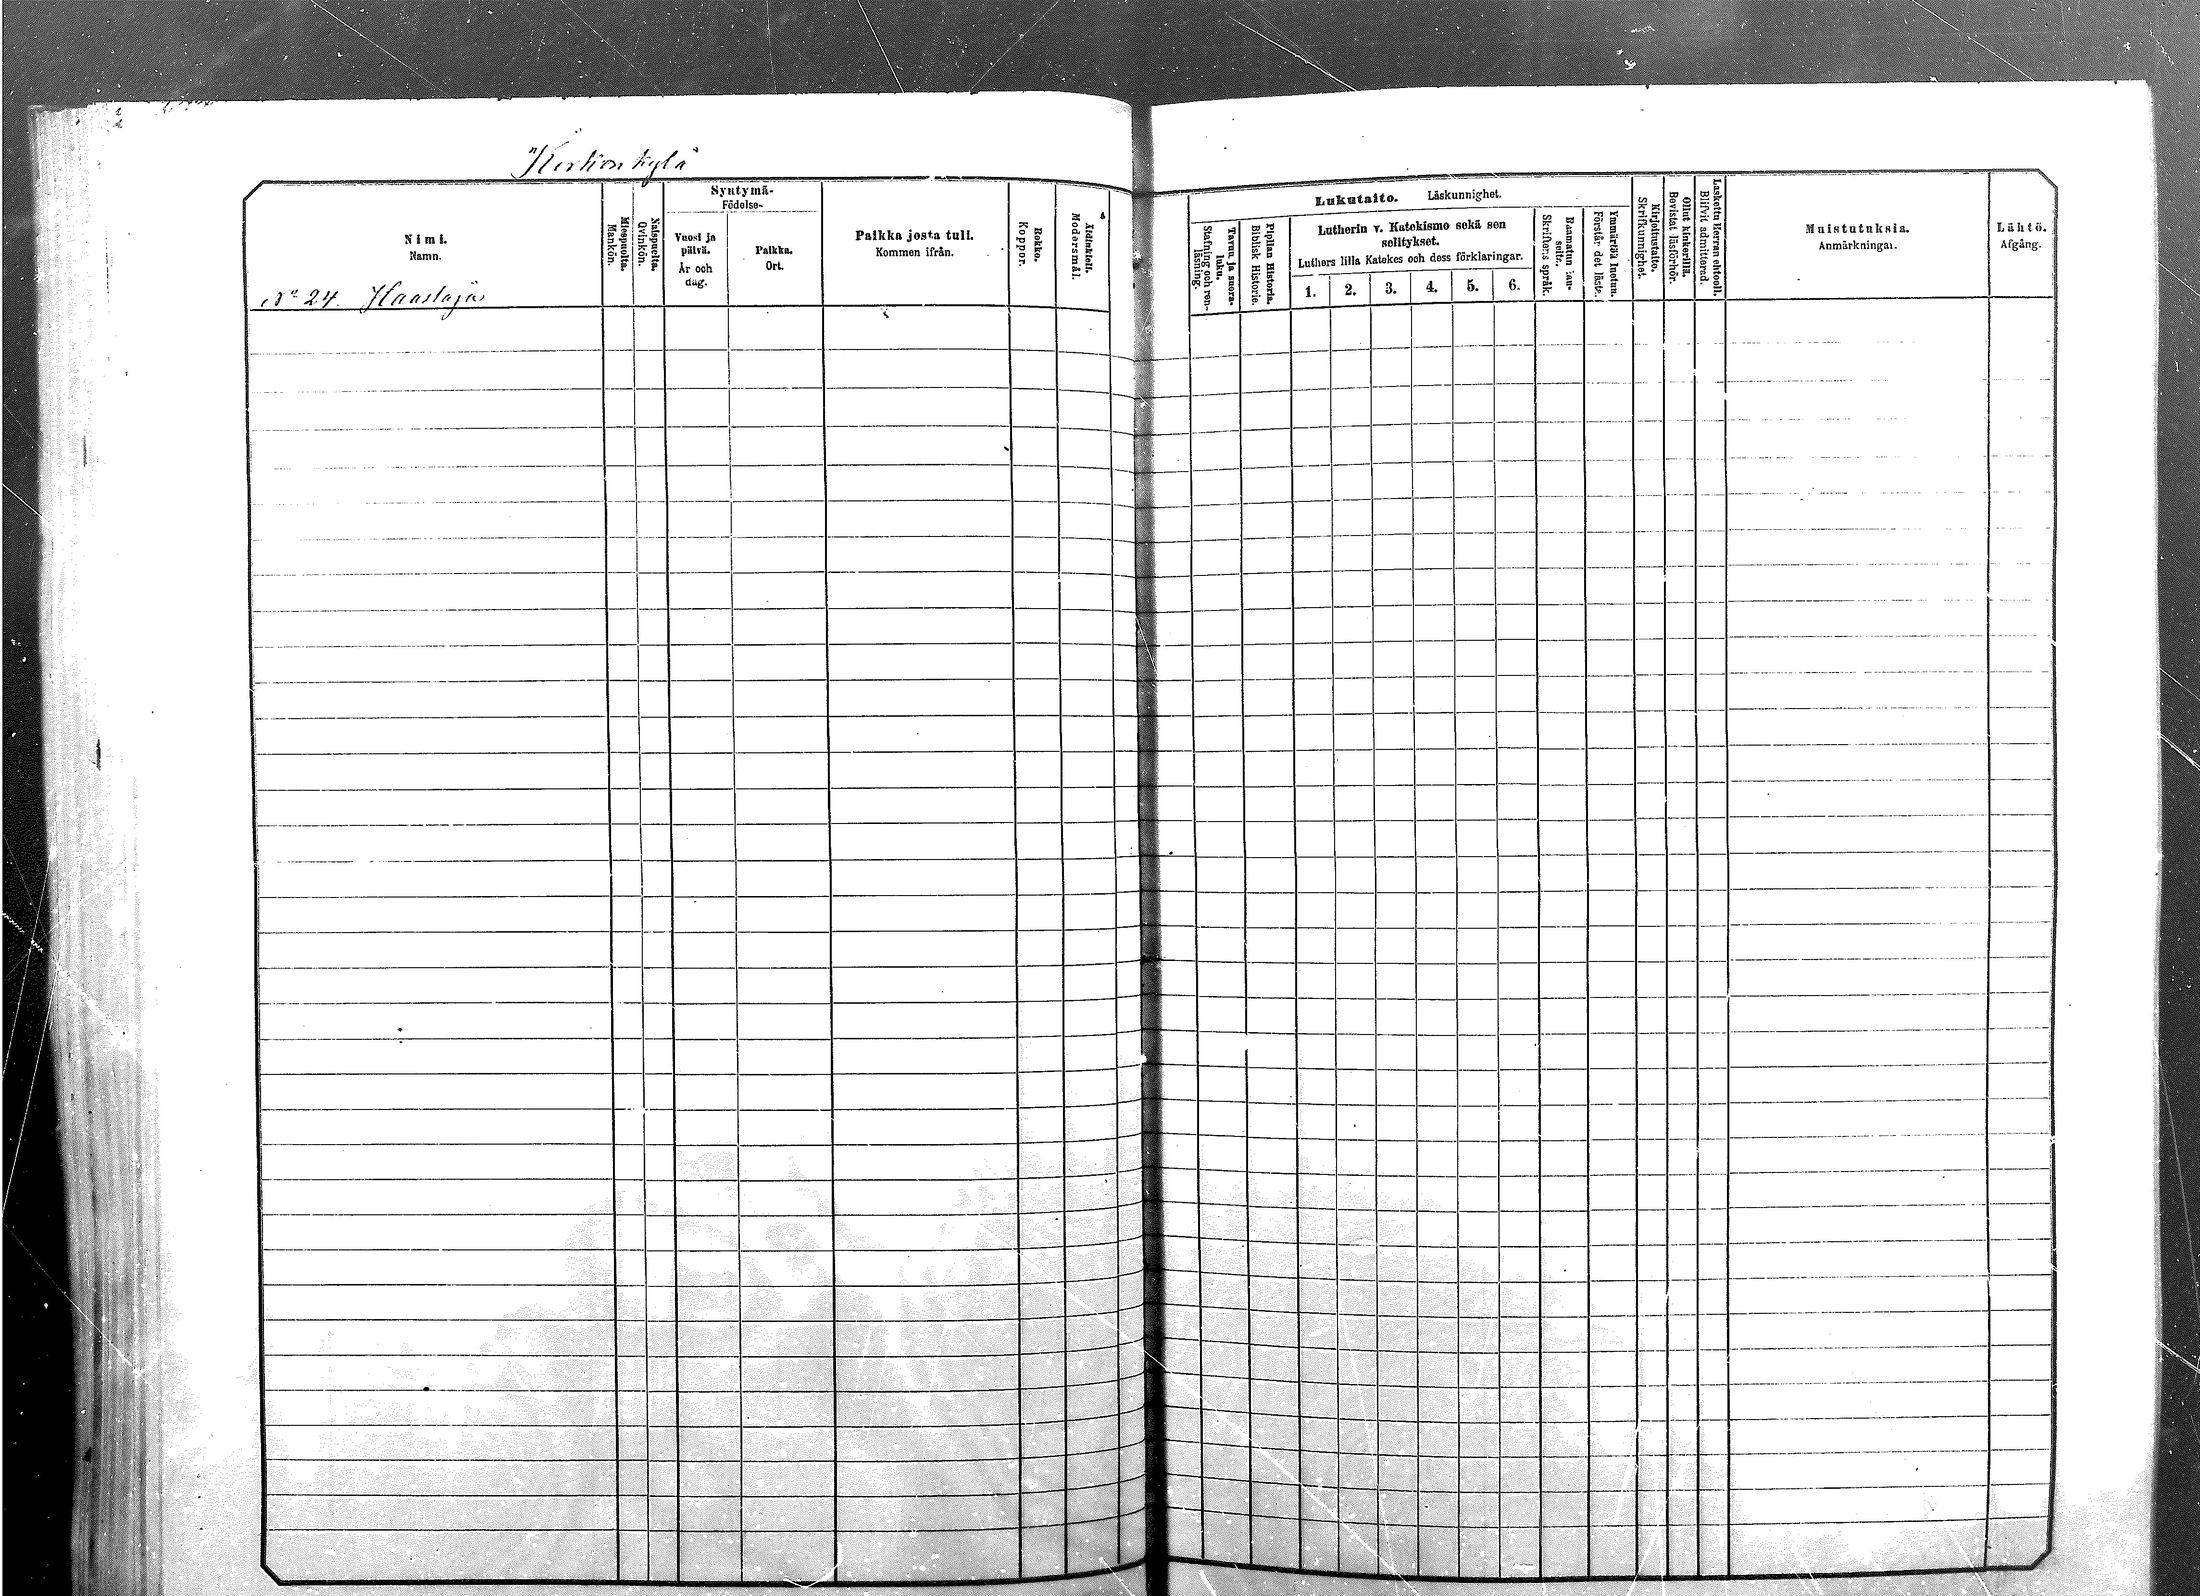 Kirkonkylä
Nimi.
Namn.
Miespuolta.
Mankön.
Naispuolta.
Qvinkön.
Syntymä-
Födelse-
Vuosi ja
päivä.
År och
dag.
Paikka.
Ort.
Paikka josta tuli.
Kommen ifrån.
Rokko.
Koppor.
Äidinkieli.
Modersmål.
No 24. Haastajas
Lukutaito. Läskunnighet.
Tavuu ja suora-
luku.
Stafning och ren-
läsning.
Piplian Historia.
Biblisk Historie.
Lutherin v. Katekismo sekä sen
selitykset.
Luthers lilla Katekes och dess förklaringar.
1. 2. 3. 4. 5. 6.
Raamatun lau-
seita.
Skriftens språk.
Ymmärtää luetun.
Förstår det lästa.
Kirjoitustaito.
Skrifkunnighet.
Ollut kinkerillä.
Bevistat läsförhör.
Laskettu Herran ehtooll.
Blifvit admitterad.
Muistutuksia.
Anmärkningar.
Lähtö.
Afgång.